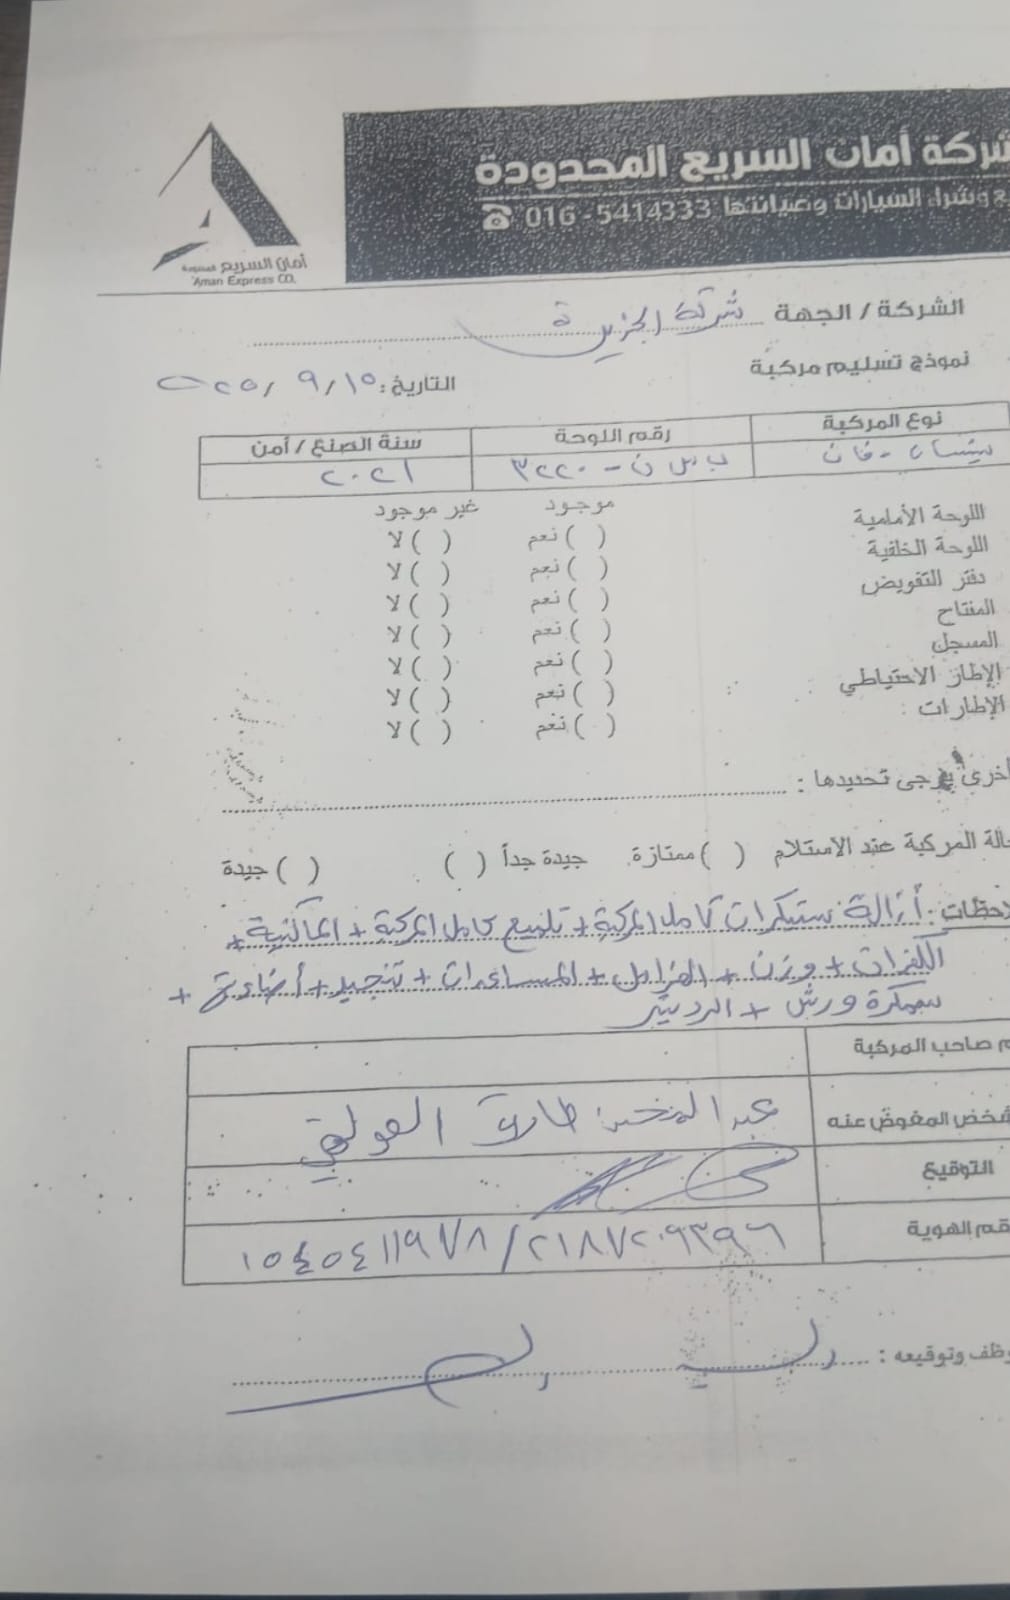 شركة أمان السريع المحدودة
وشراء السيارات وصيانتها 5414333 - 016
أمان السريع المحدودة
Aman Express CO.
الشركة / الجهة شركة الجزيرة
نموذج تسليم مركبة
التاريخ: ٢٠٢٥/٩/١٥
نوع المركبة رقم اللوحة سنة الصنع / أمن
نيسان - فان ب س ن - ٣٢٢٠ ٢٠٢١
موجود غير موجود
اللوحة الأمامية ( ) نعم ( ) لا
اللوحة الخلفية ( ) نعم ( ) لا
دفتر التفويض ( ) نعم ( ) لا
المفتاح ( ) نعم ( ) لا
المسجل ( ) نعم ( ) لا
الإطار الاحتياطي ( ) نعم ( ) لا
الإطارات : ( ) نعم ( ) لا
أخرى يرجى تحديدها :
حالة المركبة عند الاستلام ( ) ممتازة. جيدة جداً ( ) ( ) جيدة
ملاحظات : أزالة ستيكرات كامل المركبة + تلميع كامل المركبة + الماكنية +
الكفرات + وزن + الفرامل + المساعدات + تنجيد + أضاءة +
سمكرة ورش + الرديتر
اسم صاحب المركبة
الشخص المفوض عنه طارق
التوقيع
رقم الهوية ٢١٨٧٢٠٩٣٩٦ / ١٥٤٥٤١١٩٧٨
الموظف وتوقيعه :